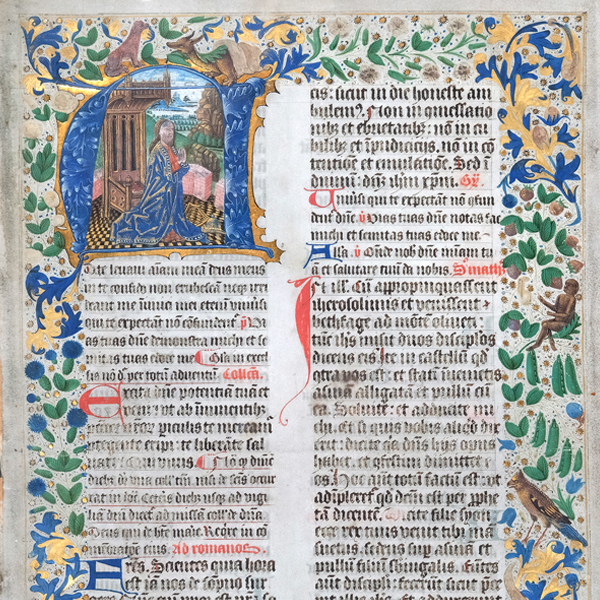 Ad te leuaui aīam meā deus meus
in te confido non erubescā neqꝫ irri
deant me inimici mei etenī vniuersi
qui te expectant nō cōfundent̄. p̄ Vi
as tuas dn̄e demonstra michi et se
mitas tuas edoce me. Gl̄a in excel
sis nō d͛ per totū aduentū. Collcā.
Excita dn̄e potentiā tuā et
veni: vt ab īminentibꝫ
pctōꝝ nr̄oꝝ piculis te meream̄
protegente eripi: te liberāte sal
uari. Qui viuis.
Deus qui de bt̄e marie Reqre in cō
Ad romanos.
Fr̄es. Scientes quia hora
est iā nos de sōpno sur
cis: sicut in die honeste am
bulem⁹. Non in cūessatio
nibꝫ et ebrietatibꝫ: nō in cu
bilibꝫ et īpudicicijs, nō in cō
tentiōe et emulatiōe. Sed ī
duimī: dn̄m ihm xp̄m. Gr̄.
Vniūsi qui te expectant nō cōfun
dent dn̄e. v̄ Vias tuas dn̄e notas fac
michi et semitas tuas edoce me.
Alla. v̄ Ostēde nob dn̄e mīam tu
ā et salutare tuū da nobis. S. math
In ill. Cū appropinquassent
iherosolimis et venissent
bethfage ad mōtē oliueti:
tūc ihs̄ misit duos discip̄los
dicens eis: Ite in castellū qd̄
cōtra vos est: et statī īuenietis
asinā alligatā et pullū cū
ea. Soluite: et adducite mi
chi. Et si quis vobis aliqd dix
erit: dicite qꝛ dn̄s hijs opus
habet: et cōfestim dimittet
eos. Hoc aūt totū factū est: vt
adīpleret̄ qd̄ dc̄m est per pp̄he
tā dicentē. Dicite filie syon:
ecce rex tuus venit tibi mā
suetus, sedens sup asinā et
pullū filiū subiugalis. Eūtes
aūt discip̄li: fecerūt sicut p̄ce